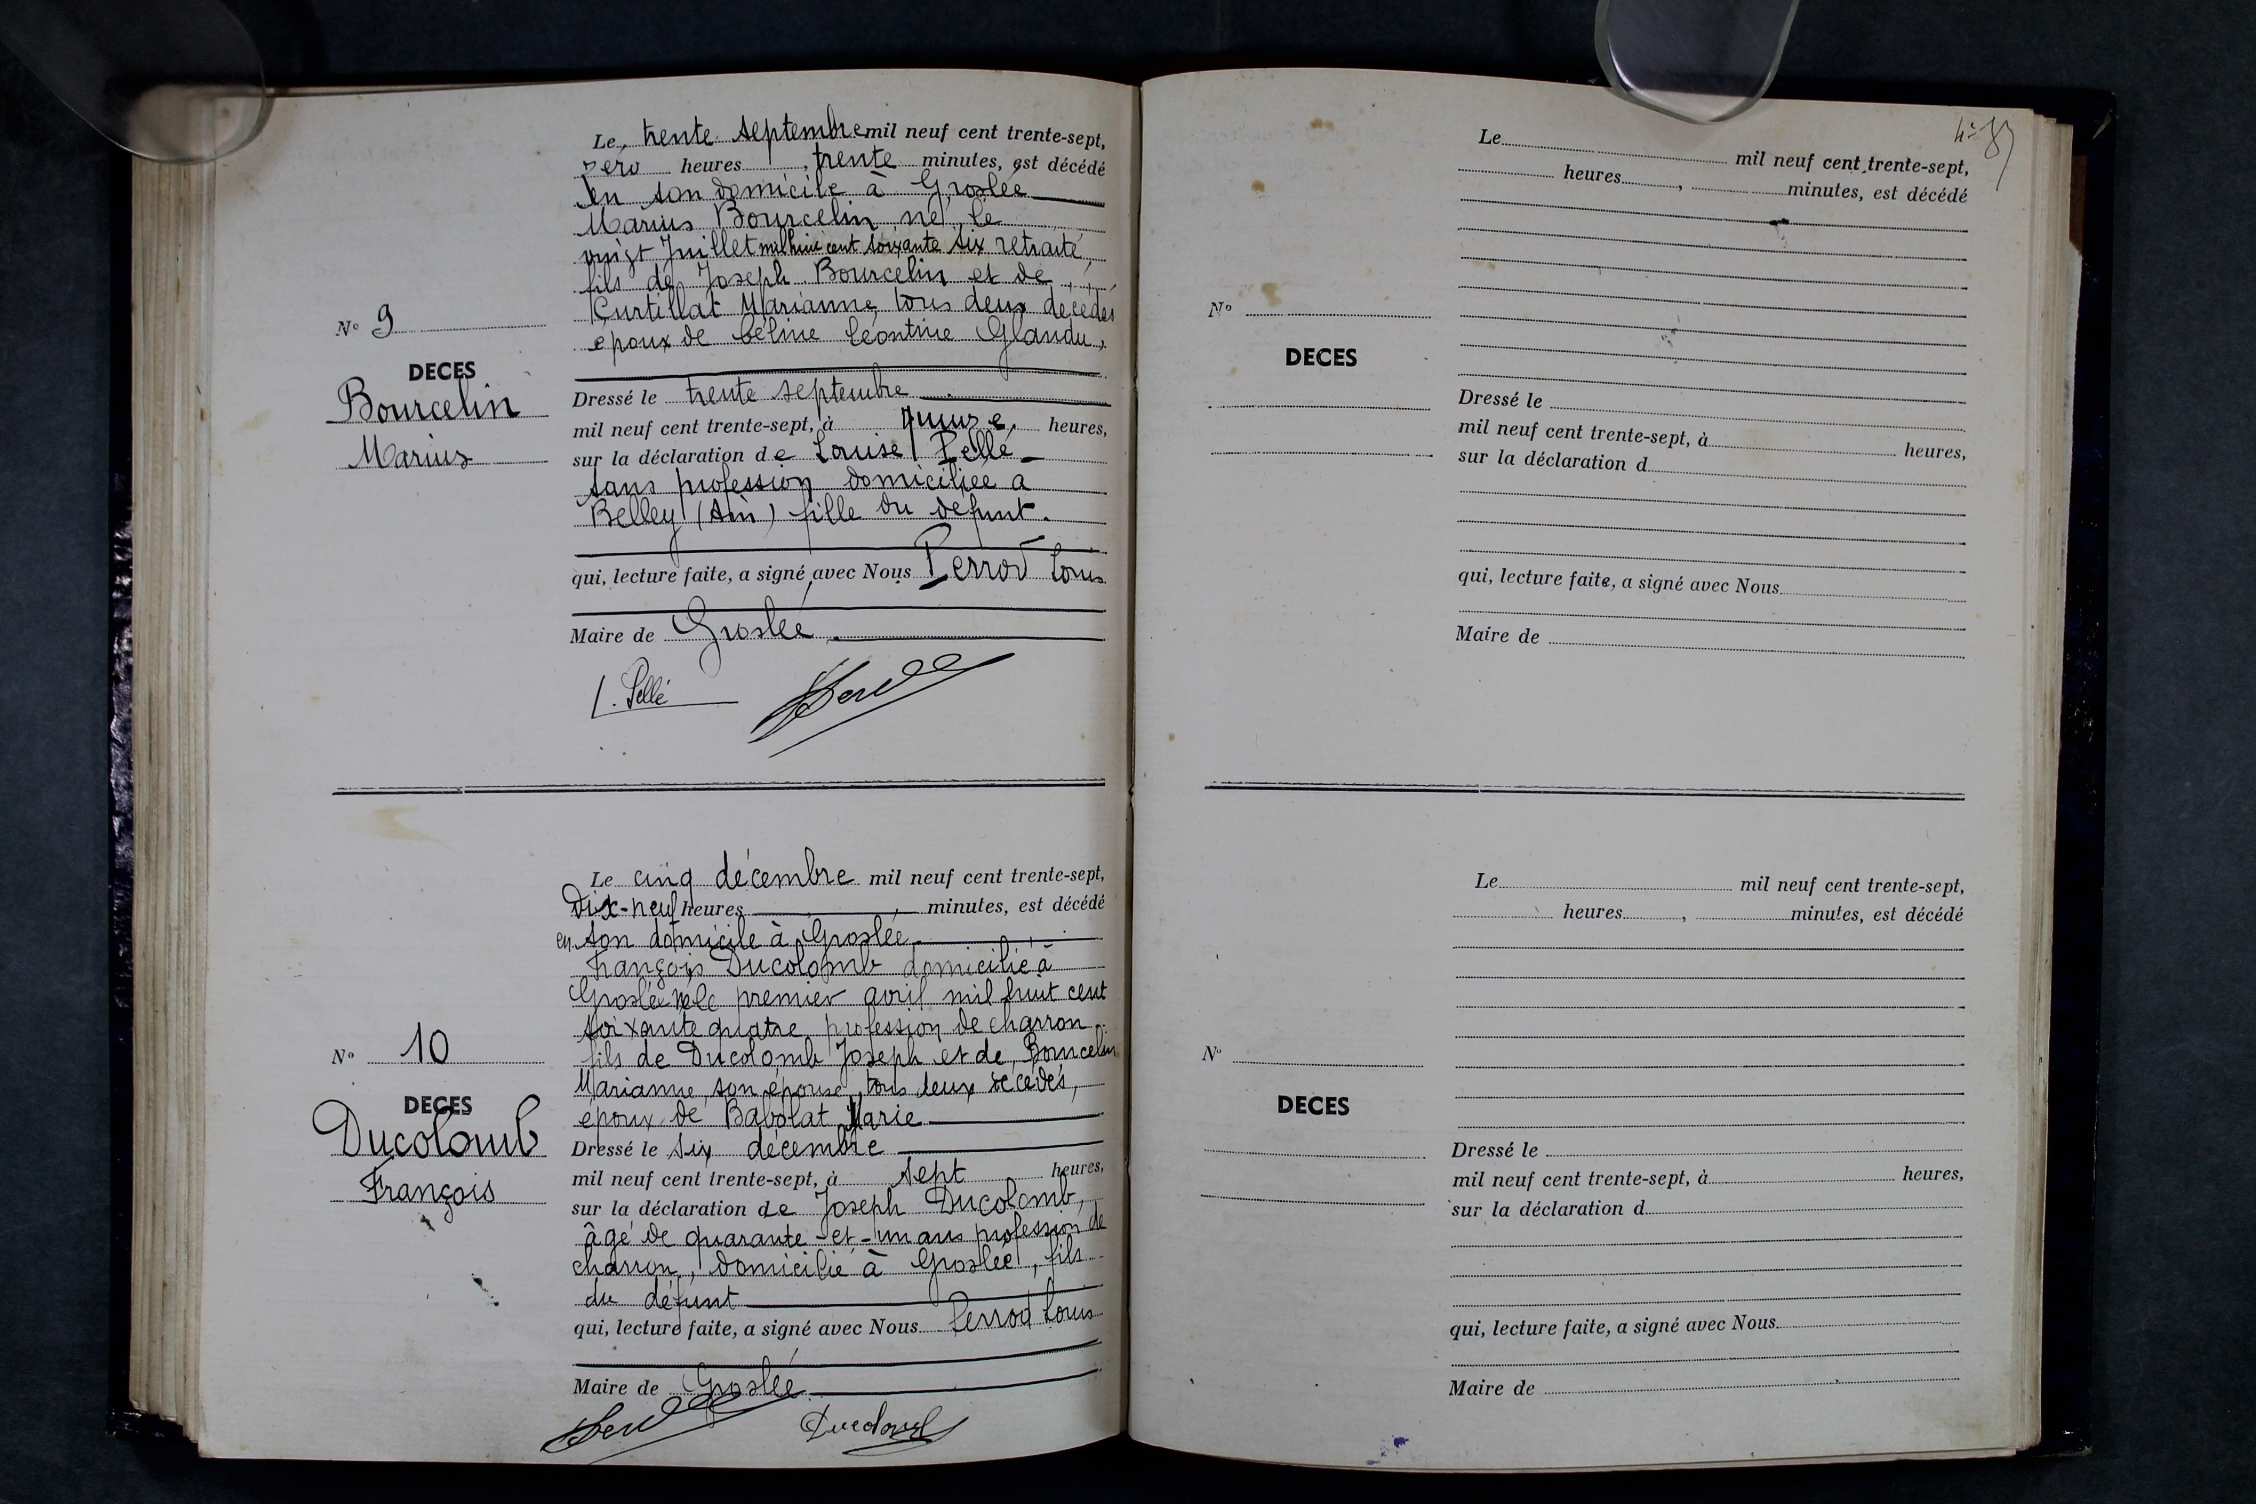 Le, trente septembre mil neuf cent trente-sept,
zéro heures, trente minutes, est décédé
en son domicile à Groslée
Marius Bourcelin né le
vingt Juillet mil huit cent soixante six retraité,
fils de Joseph Bourcelin et de
Curtillat Marianne, tous deux décédés
époux de Céline Léontine Glandu,
N° 9
DECES
Bourcelin
Marius
Dressé le trente septembre
mil neuf cent trente-sept, à quinze heures,
sur la déclaration de Louise Pellé
sans profession domiciliée à
Belley (Ain) fille du défunt.
qui, lecture faite, a signé avec Nous Perrod Louis
Maire de Groslée
L. Pellé
Le cinq décembre mil neuf cent trente-sept,
Dix-neuf heures, minutes, est décédé
en son domicile à Groslée
François Ducolomb domicilié à
Groslée né le premier avril mil huit cent
soixante quatre profession de charron
fils de Ducolomb Joseph et de Bourcelin
Marianne, son épouse, tous deux décédés,
époux de Babolat Marie
N° 10
DECES
Ducolomb
François
Dressé le six décembre
mil neuf cent trente-sept, à sept heures,
sur la déclaration de Joseph Ducolomb,
âgé de quarante-et-un ans profession de
charron, domicilié à Groslée, fils
du défunt
qui, lecture faite, a signé avec Nous Perrod Louis
Maire de Groslée
Ducolomb
Le mil neuf cent trente-sept,
heures, minutes, est décédé
N°
DECES
Dressé le
mil neuf cent trente-sept, à heures,
sur la déclaration d
qui, lecture faite, a signé avec Nous
Maire de
Le mil neuf cent trente-sept,
heures, minutes, est décédé
N°
DECES
Dressé le
mil neuf cent trente-sept, à heures,
sur la déclaration d
qui, lecture faite, a signé avec Nous
Maire de